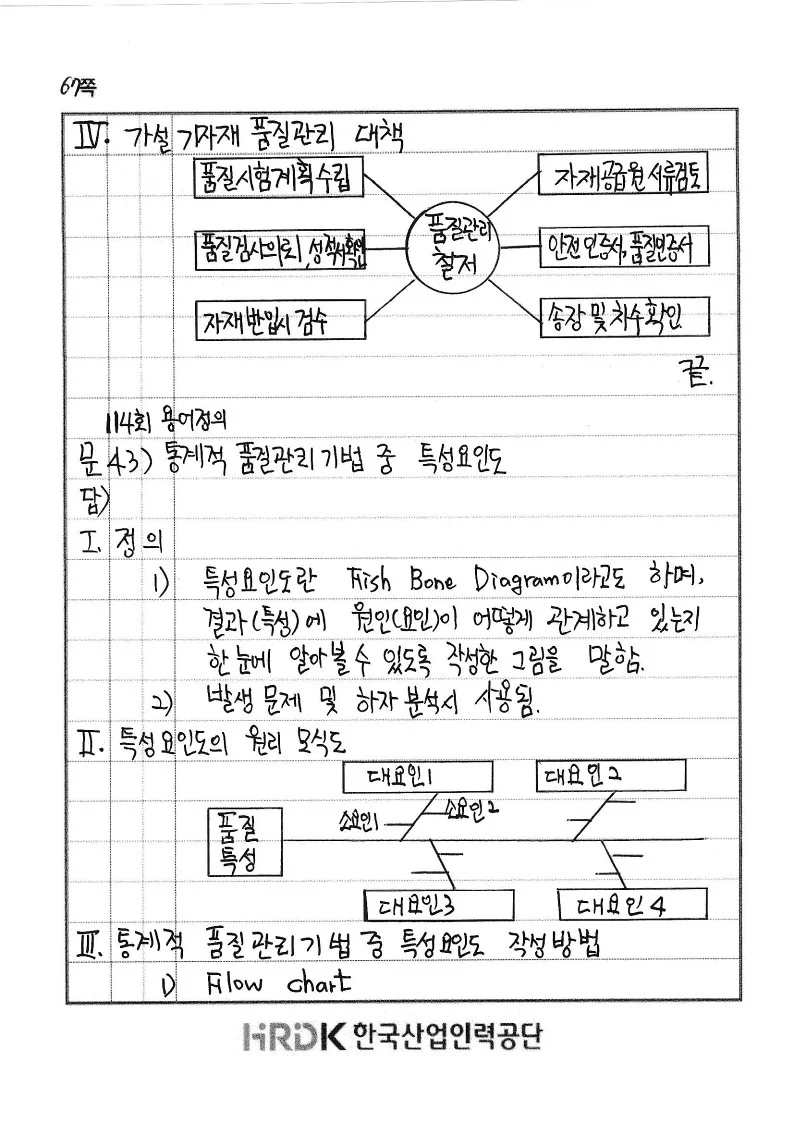 67쪽
Ⅳ. 가설 기자재 품질관리 대책
품질시험계획수립
자재공급원 서류검토
품질관리
철저
품질검사의뢰, 성적서확인
안전인증서, 품질인증서
자재반입시 검수
송장 및 치수확인
끝.
114회 용어정의
문 43) 통계적 품질관리기법 중 특성요인도
답)
Ⅰ. 정의
1) 특성요인도란 Fish Bone Diagram이라고도 하며,
결과(특성)에 원인(요인)이 어떻게 관계하고 있는지
한눈에 알아볼 수 있도록 작성한 그림을 말함.
2) 발생 문제 및 하자 분석시 사용됨.
Ⅱ. 특성요인도의 원리 모식도
대요인1
대요인2
소요인1
소요인2
품질
특성
대요인3
대요인4
Ⅲ. 통계적 품질관리기법 중 특성요인도 작성방법
1) Flow chart
HRDK 한국산업인력공단